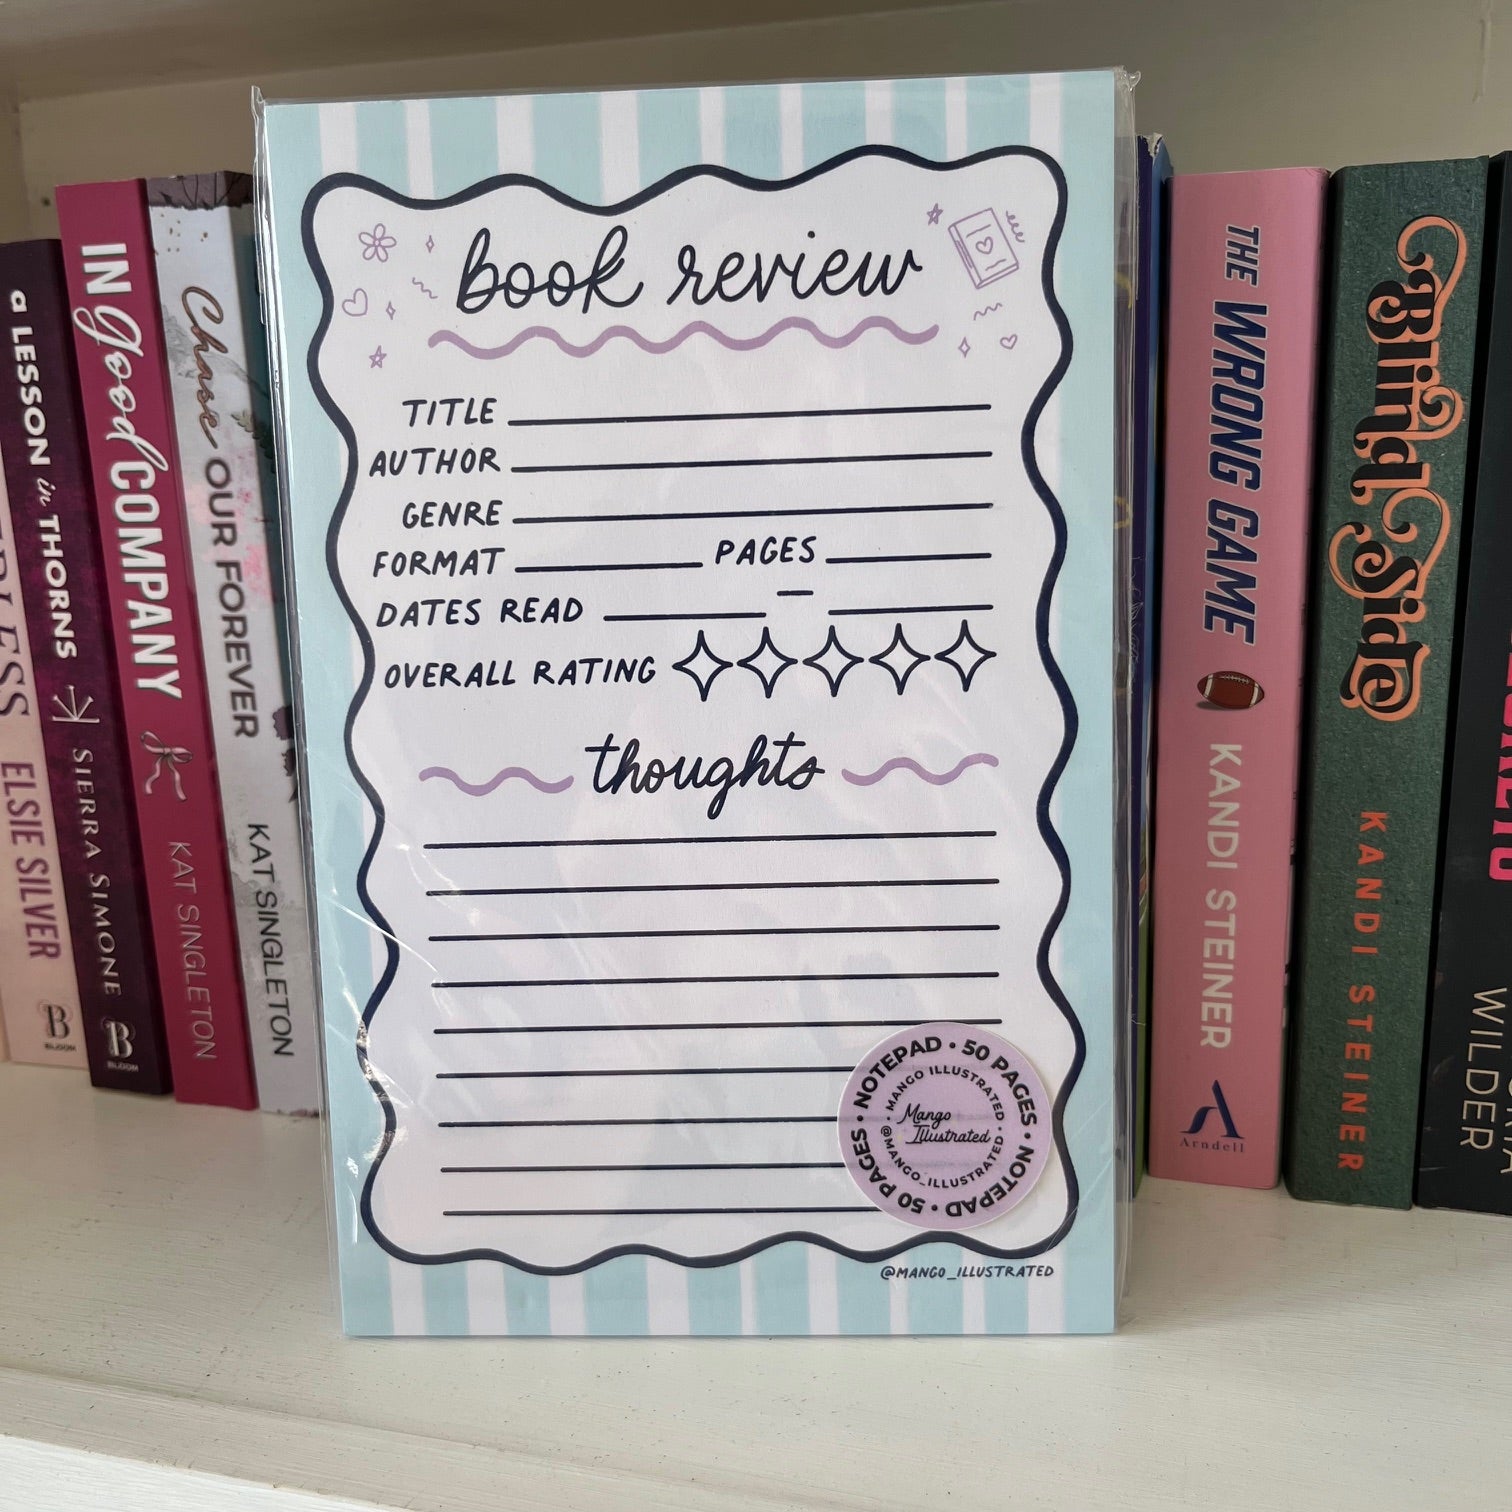 book review
TITLE
AUTHOR
GENRE
FORMAT PAGES
DATES READ –
OVERALL RATING
thoughts
NOTEPAD • 50 PAGES • NOTEPAD • 50 PAGES •
• MANGO ILLUSTRATED • @MANGO_ILLUSTRATED
Mango
Illustrated
@MANGO_ILLUSTRATED
ELSIE SILVER
B
BLOOM
a LESSON in THORNS
SIERRA SIMONE
B
BLOOM
IN good COMPANY
KAT SINGLETON
Chase OUR FOREVER
KAT SINGLETON
THE WRONG GAME
KANDI STEINER
A
Arndell
Blind Side
KANDI STEINER
WILDER